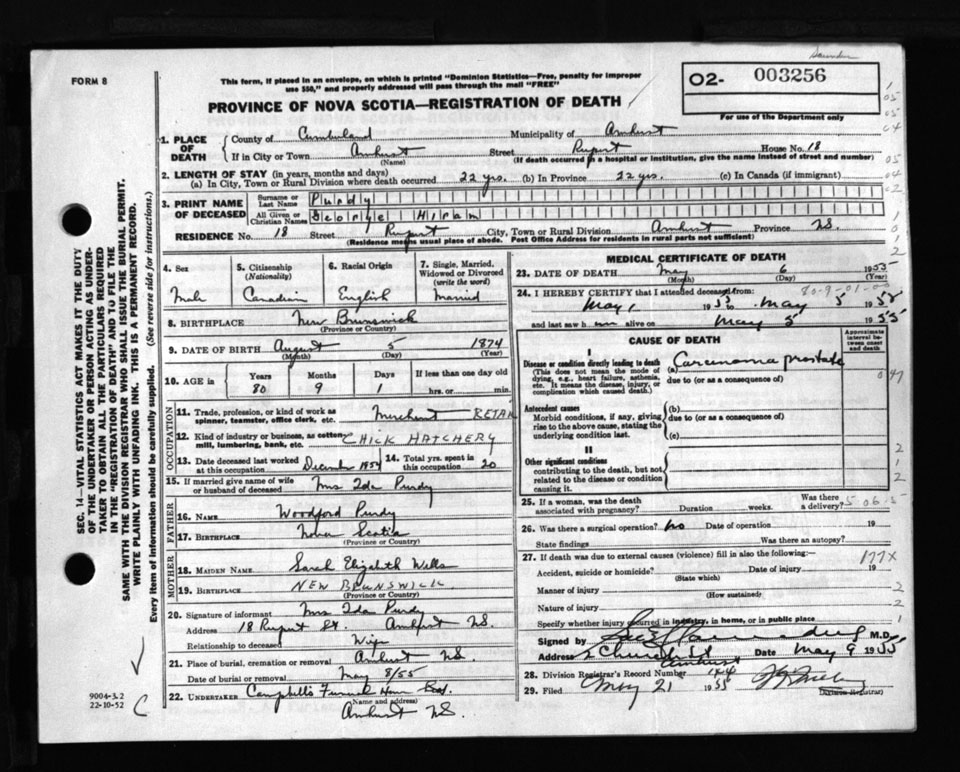 FORM 8
This form, if placed in an envelope, on which is printed "Dominion Statistics—Free, penalty for improper
use $50," and properly addressed will pass through the mail "FREE"
O2- 003256
For use of the Department only
PROVINCE OF NOVA SCOTIA—REGISTRATION OF DEATH
1. PLACE OF DEATH
County of Cumberland Municipality of Amherst
If in City or Town Amherst Street Rupert House No. 18
(Name) (If death occurred in a hospital or institution, give the name instead of street and number)
2. LENGTH OF STAY (in years, months and days)
(a) In City, Town or Rural Division where death occurred 22 yrs. (b) In Province 22 yrs. (c) In Canada (if immigrant)
3. PRINT NAME OF DECEASED
Surname or Last Name Purdy
All Given or Christian Names George Hiram
RESIDENCE No. 18 Street Rupert City, Town or Rural Division Amherst Province NS.
(Residence means usual place of abode. Post Office Address for residents in rural parts not sufficient)
4. Sex
Male
5. Citizenship
(Nationality)
Canadian
6. Racial Origin
English
7. Single, Married, Widowed or Divorced
(write the word)
Married
8. BIRTHPLACE New Brunswick
(Province or Country)
9. DATE OF BIRTH August 5 1874
(Month) (Day) (Year)
10. AGE in Years Months Days If less than one day old
80 9 1 hrs. or min.
OCCUPATION
11. Trade, profession, or kind of work as spinner, teamster, office clerk, etc. Merchant RETAIL
12. Kind of industry or business, as cotton mill, lumbering, bank, etc. CHICK HATCHERY
13. Date deceased last worked at this occupation December 1954
14. Total yrs. spent in this occupation 20
15. If married give name of wife or husband of deceased Mrs Ida Purdy
FATHER
16. NAME Woodford Purdy
17. BIRTHPLACE Nova Scotia
(Province or Country)
MOTHER
18. MAIDEN NAME Sarah Elizabeth Wells
19. BIRTHPLACE NEW BRUNSWICK
(Province or Country)
20. Signature of informant Mrs Ida Purdy
Address 18 Rupert St. Amherst NS.
Relationship to deceased Wife
21. Place of burial, cremation or removal Amherst NS.
Date of burial or removal May 8/55
22. UNDERTAKER Campbell's Funeral Home
(Name and address)
Amherst NS.
MEDICAL CERTIFICATE OF DEATH
23. DATE OF DEATH May 6 1955
(Month) (Day) (Year)
24. I HEREBY CERTIFY that I attended deceased from: 80-9-01-00
May, 1953 May 5 1955
and last saw him alive on May 5 1955
CAUSE OF DEATH
Approximate interval between onset and death
I
Disease or condition directly leading to death
(This does not mean the mode of dying, e.g., heart failure, asthenia, etc. It means the disease, injury, or complication which caused death.)
(a) Carcinoma prostate
due to (or as a consequence of)
Antecedent causes
Morbid conditions, if any, giving rise to the above cause, stating the underlying condition last.
(b)
due to (or as a consequence of)
(c)
II
Other significant conditions
contributing to the death, but not related to the disease or condition causing it.
25. If a woman, was the death associated with pregnancy? Duration weeks. Was there a delivery?
26. Was there surgical operation? no Date of operation 19
State findings Was there an autopsy?
27. If death was due to external causes (violence) fill in also the following:— 177X
Accident, suicide or homicide? Date of injury 19
(State which)
Manner of injury
(How sustained)
Nature of injury
Specify whether injury occurred in industry, in home, or in public place
Signed by M.D.
Address 2 Church St Amherst Date May 9 1955
28. Division Registrar's Record Number 144
29. Filed May 21 1955
Division Registrar
SEC. 14—VITAL STATISTICS ACT MAKES IT THE DUTY
OF THE UNDERTAKER OR PERSON ACTING AS UNDER-
TAKER TO OBTAIN ALL THE PARTICULARS REQUIRED
IN THE "REGISTRATION OF DEATH" AND TO FILE THE
SAME WITH THE DIVISION REGISTRAR WHO SHALL ISSUE THE BURIAL PERMIT.
WRITE PLAINLY WITH UNFADING INK. THIS IS A PERMANENT RECORD.
Every item of information should be carefully supplied. (See reverse side for instructions.)
9004-3.2
22-10-52
C